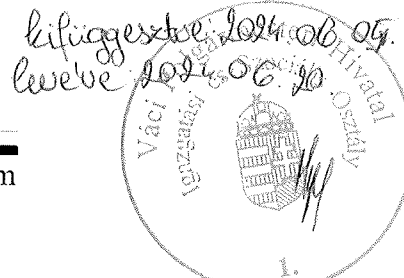 kifüggesztve: 2024. 06. 04.
levéve 2024. 06. 20.
Váci Hivatal
Igazgatási és Szociális Osztály
1.
m